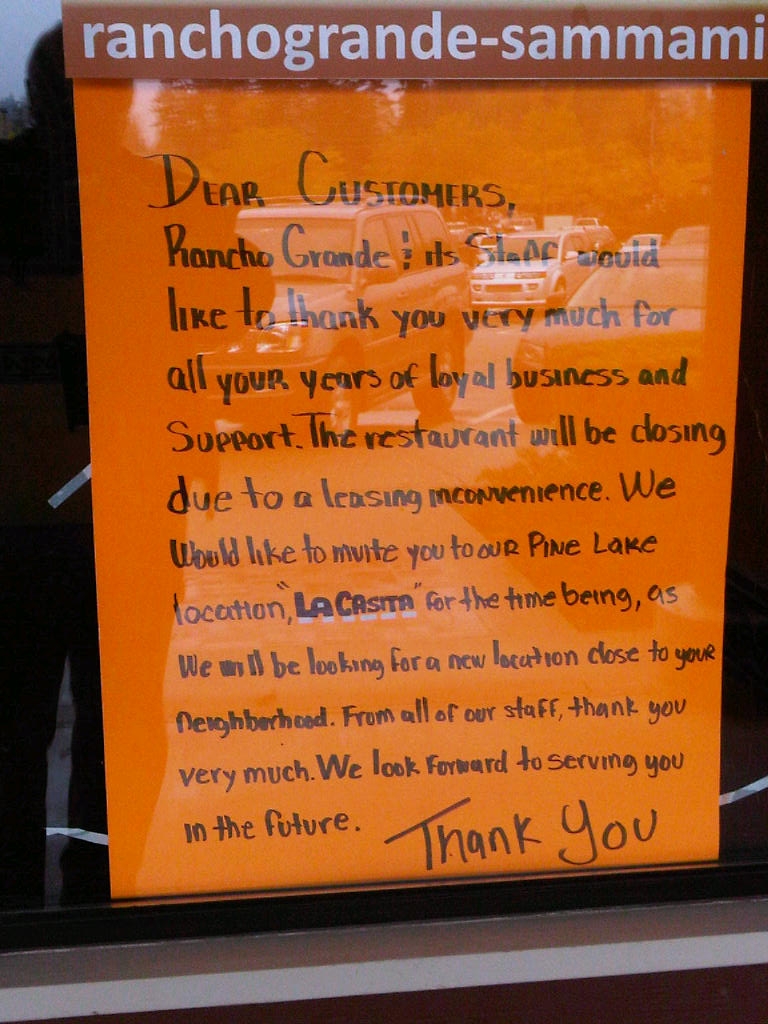 ranchogrande-sammami
DEAR CUSTOMERS,
Rancho Grande & its Staff would
like to thank you very much for
all your years of loyal business and
Support. The restaurant will be closing
due to a leasing inconvenience. We
Would like to invite you to our Pine Lake
location, "LA CASITA" for the time being, as
We will be looking for a new location close to your
neighborhood. From all of our staff, thank you
very much. We look forward to serving you
in the future. Thank You